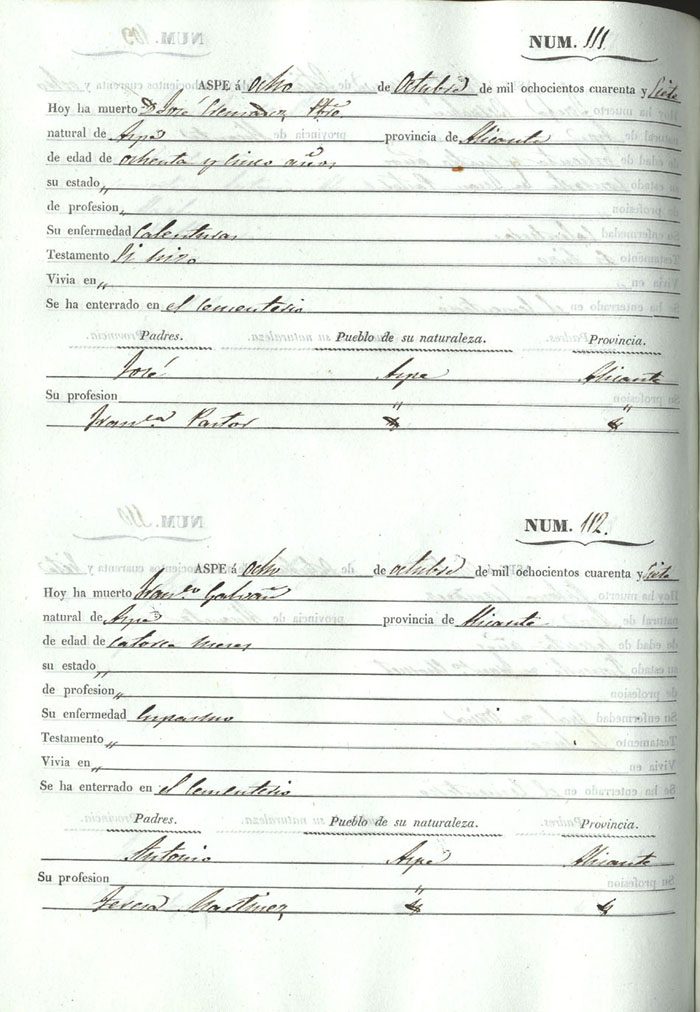 NUM. 111
ASPE á ocho de Octubre de mil ochocientos cuarenta y siete
Hoy ha muerto Dn José
natural de Aspe provincia de Alicante
de edad de ochenta y cinco años
su estado „
de profesion „
Su enfermedad Calenturas
Testamento Si hizo
Vivia en „
Se ha enterrado en el Cementerio
Padres. Pueblo de su naturaleza. Provincia.
José Aspe Alicante
Su profesion „ „
Franca Pastor
NUM. 112.
ASPE á ocho de octubre de mil ochocientos cuarenta y siete
Hoy ha muerto Franco Galvañ
natural de Aspe provincia de Alicante
de edad de catorce meses
su estado „
de profesion „
Su enfermedad
Testamento „
Vivia en „
Se ha enterrado en el Cementerio
Padres. Pueblo de su naturaleza. Provincia.
Antonio Aspe Alicante
Su profesion „
Teresa Martinez